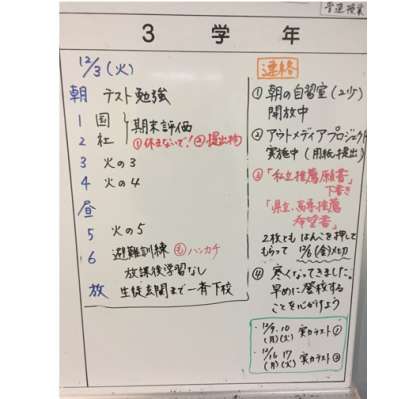 普通授業
3 学 年
12/3(火)
朝 テスト勉強
1 国
2 社
期末評価
①休まないで! ②提出物
3 火の3
4 火の4
昼
5 火の5
6 避難訓練 持 ハンカチ
放課後学習なし
放 生徒玄関まで一斉下校
連絡
① 朝の自習室(ユリ)
開放中
② アウトメディアプロジェクト
実施中(用紙提出)
③「私立推薦願書」
下書き
「県立、高専推薦
希望書」
2枚とも はんこを押して
もらって 12/6(金)〆切
④ 寒くなってきました。
早めに登校する
ことを心がけよう
12/9, 10 実力テスト①
(月)(火)
12/16 17 実力テスト②
(月)(火)